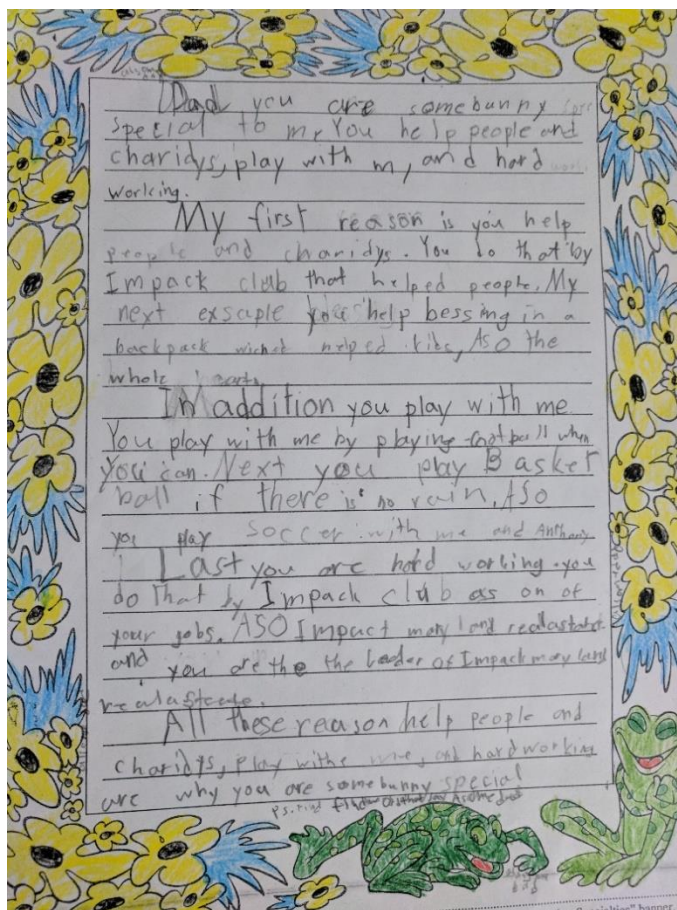 Dad you are somebunny
special to m, You help people and
charidys, play with m, and hard
working.
My first reason is you help
people and charidys. You do that by
Impack club that helped people. My
next exsaple you help bessing in a
backpack wiched helped kids, ASO the
whole hearts
IN addition you play with me
You play with me by playing football when
you can. Next you play Basket
ball if there is no rain, ASO
you play soccer with me and Anthony
Last you are hard working. you
do that by Impack club as on of
your jobs. ASO Impact mary land realastate
and you are the the leader of Impack mary land
realasteate.
All these reason help people and
charidys, play withe me, and hardworking
are why you are somebunny special
ps. find